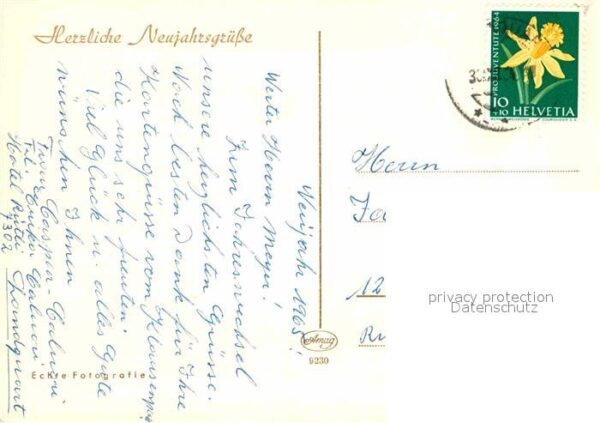 Herzliche Neujahrsgrüße
Neujahr 1965!
Werter Herr Meyer!
Zum Jahreswechsel
unsere herzlichsten Grüsse.
Noch besten Dank für Ihre
Kartengrüsse vom Klausenpass
die uns sehr freuten.
Viel Glück u. alles Gute
wünschen Ihnen
Fam. Caspar-Caluori
Frl. Erika Caluori
Hotel Rütli Landquart
7302
Echte Fotografie
Amag
9230
PRO JUVENTUTE 1964
10
+10
HELVETIA
Herrn
12
privacy protection
Datenschutz